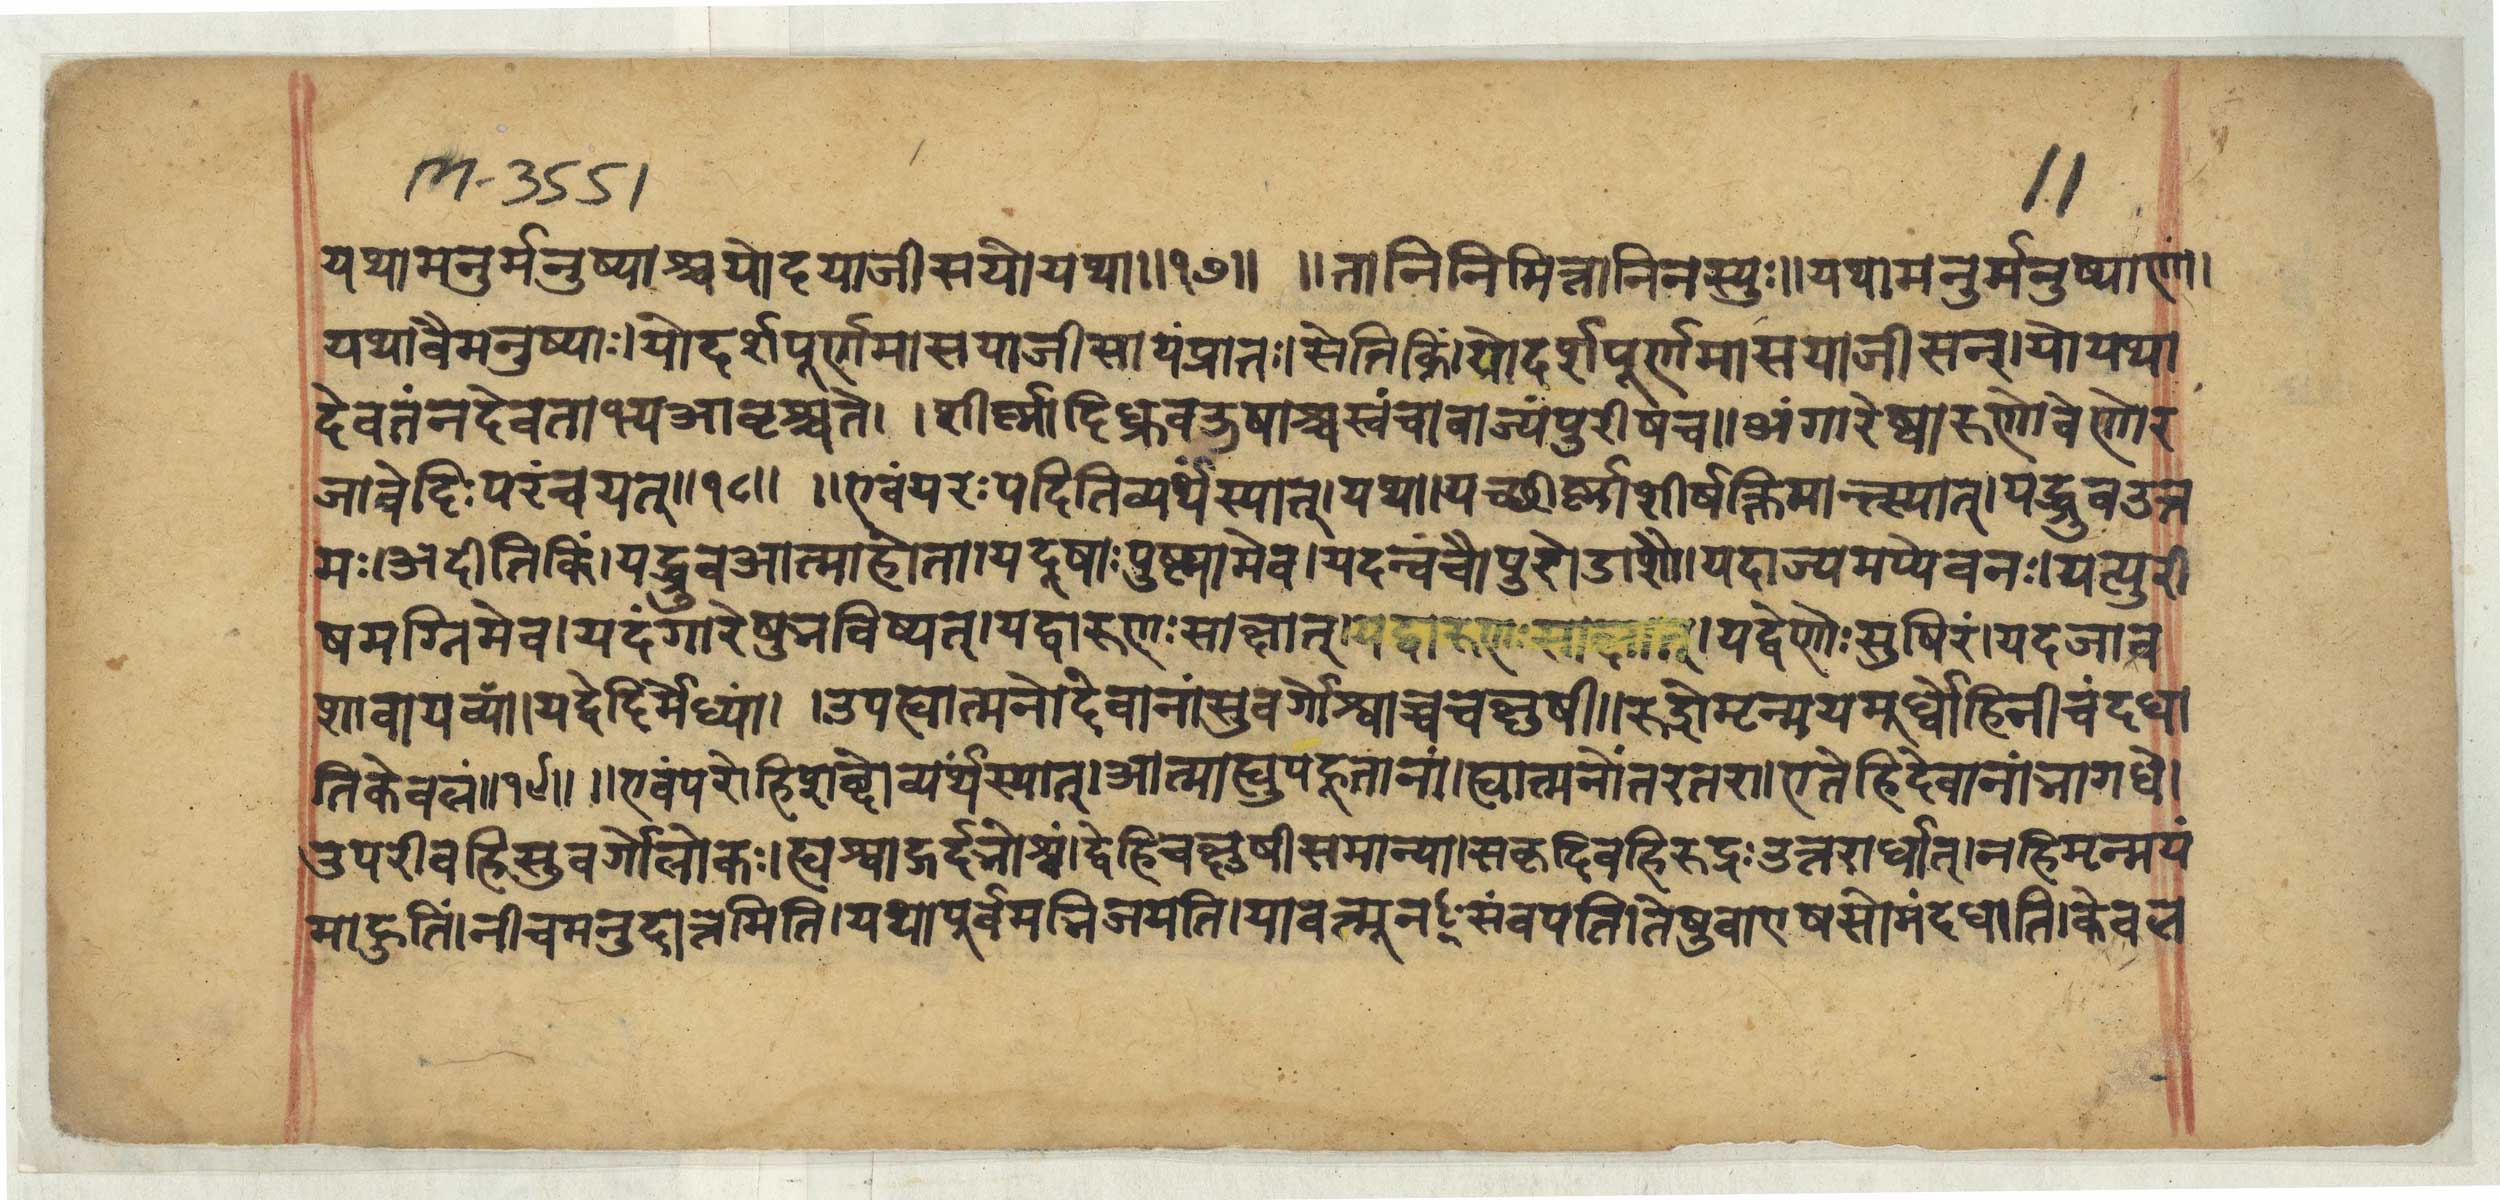 M-3551
11
यथामनुर्मनुष्याश्चयोदयाजीसयोयथा॥१७॥ ॥तानिनिमित्तानिनस्युः॥यथामनुर्मनुष्याणां।
यथावैमनुष्याः।योदर्शपूर्णमासयाजीसायंप्रातः।सेतिकिं।योदर्शपूर्णमासयाजीसन्।योयथा
देवतंनदेवताभ्यआवृश्च्यते। ।शीर्ष्णादिध्रुवऊषाश्चत्वंचावाज्यंपुरीषच॥अंगारेष्वारुणोवेणोर
जान्वेदिःपरंन्वयत्॥१८॥ ॥एवंपरःपदितिव्यर्थंस्यात्।यथा।यच्छीर्ष्णाशीर्षक्तिमान्त्स्यात्।यद्ध्रुवउत्त
मः।अदीतिकिं।यद्ध्रुवआत्माहोता।यदूषाःपुष्ट्यामेव।यदन्वंचौपुरोडाशौ।यदाज्यमप्येवनः।यत्पुरी
षमग्निमेव।यदंगारेषुभविष्यत्।यद्वारुणःसाक्षात्।यद्वारुणःसाक्षात्।यद्वेणोःसुषिरं।यदजाव
शावायव्यां।यद्वेदिर्मेध्यां। ।उपह्वात्मनोदेवानांसुवर्गोश्वाच्चचक्षुषी॥रुद्रोमृन्मयमूर्ध्वोहिनीचंदधा
तिकेवलं॥१९॥ ॥एवंपरोहिशब्दोव्यर्थंस्यात्।आत्माह्युपहूतानां।ह्यात्मनोंतरतरा।एतेहिदेवानांभागधे।
उपरीवहिसुवर्गोलोकः।ह्यश्वाद्गर्दभोश्वं।द्वेहिचक्षुषीसमान्या।सकृदिवहिरुद्रःउत्तरार्धात्।नहिमृन्मयं
माहुतिं।नीचमनुदात्तमिति।यथापूर्वमभिजयति।यावत्मूनꣳसंवपति।तेषुवाएषसोमंदधाति।केवल